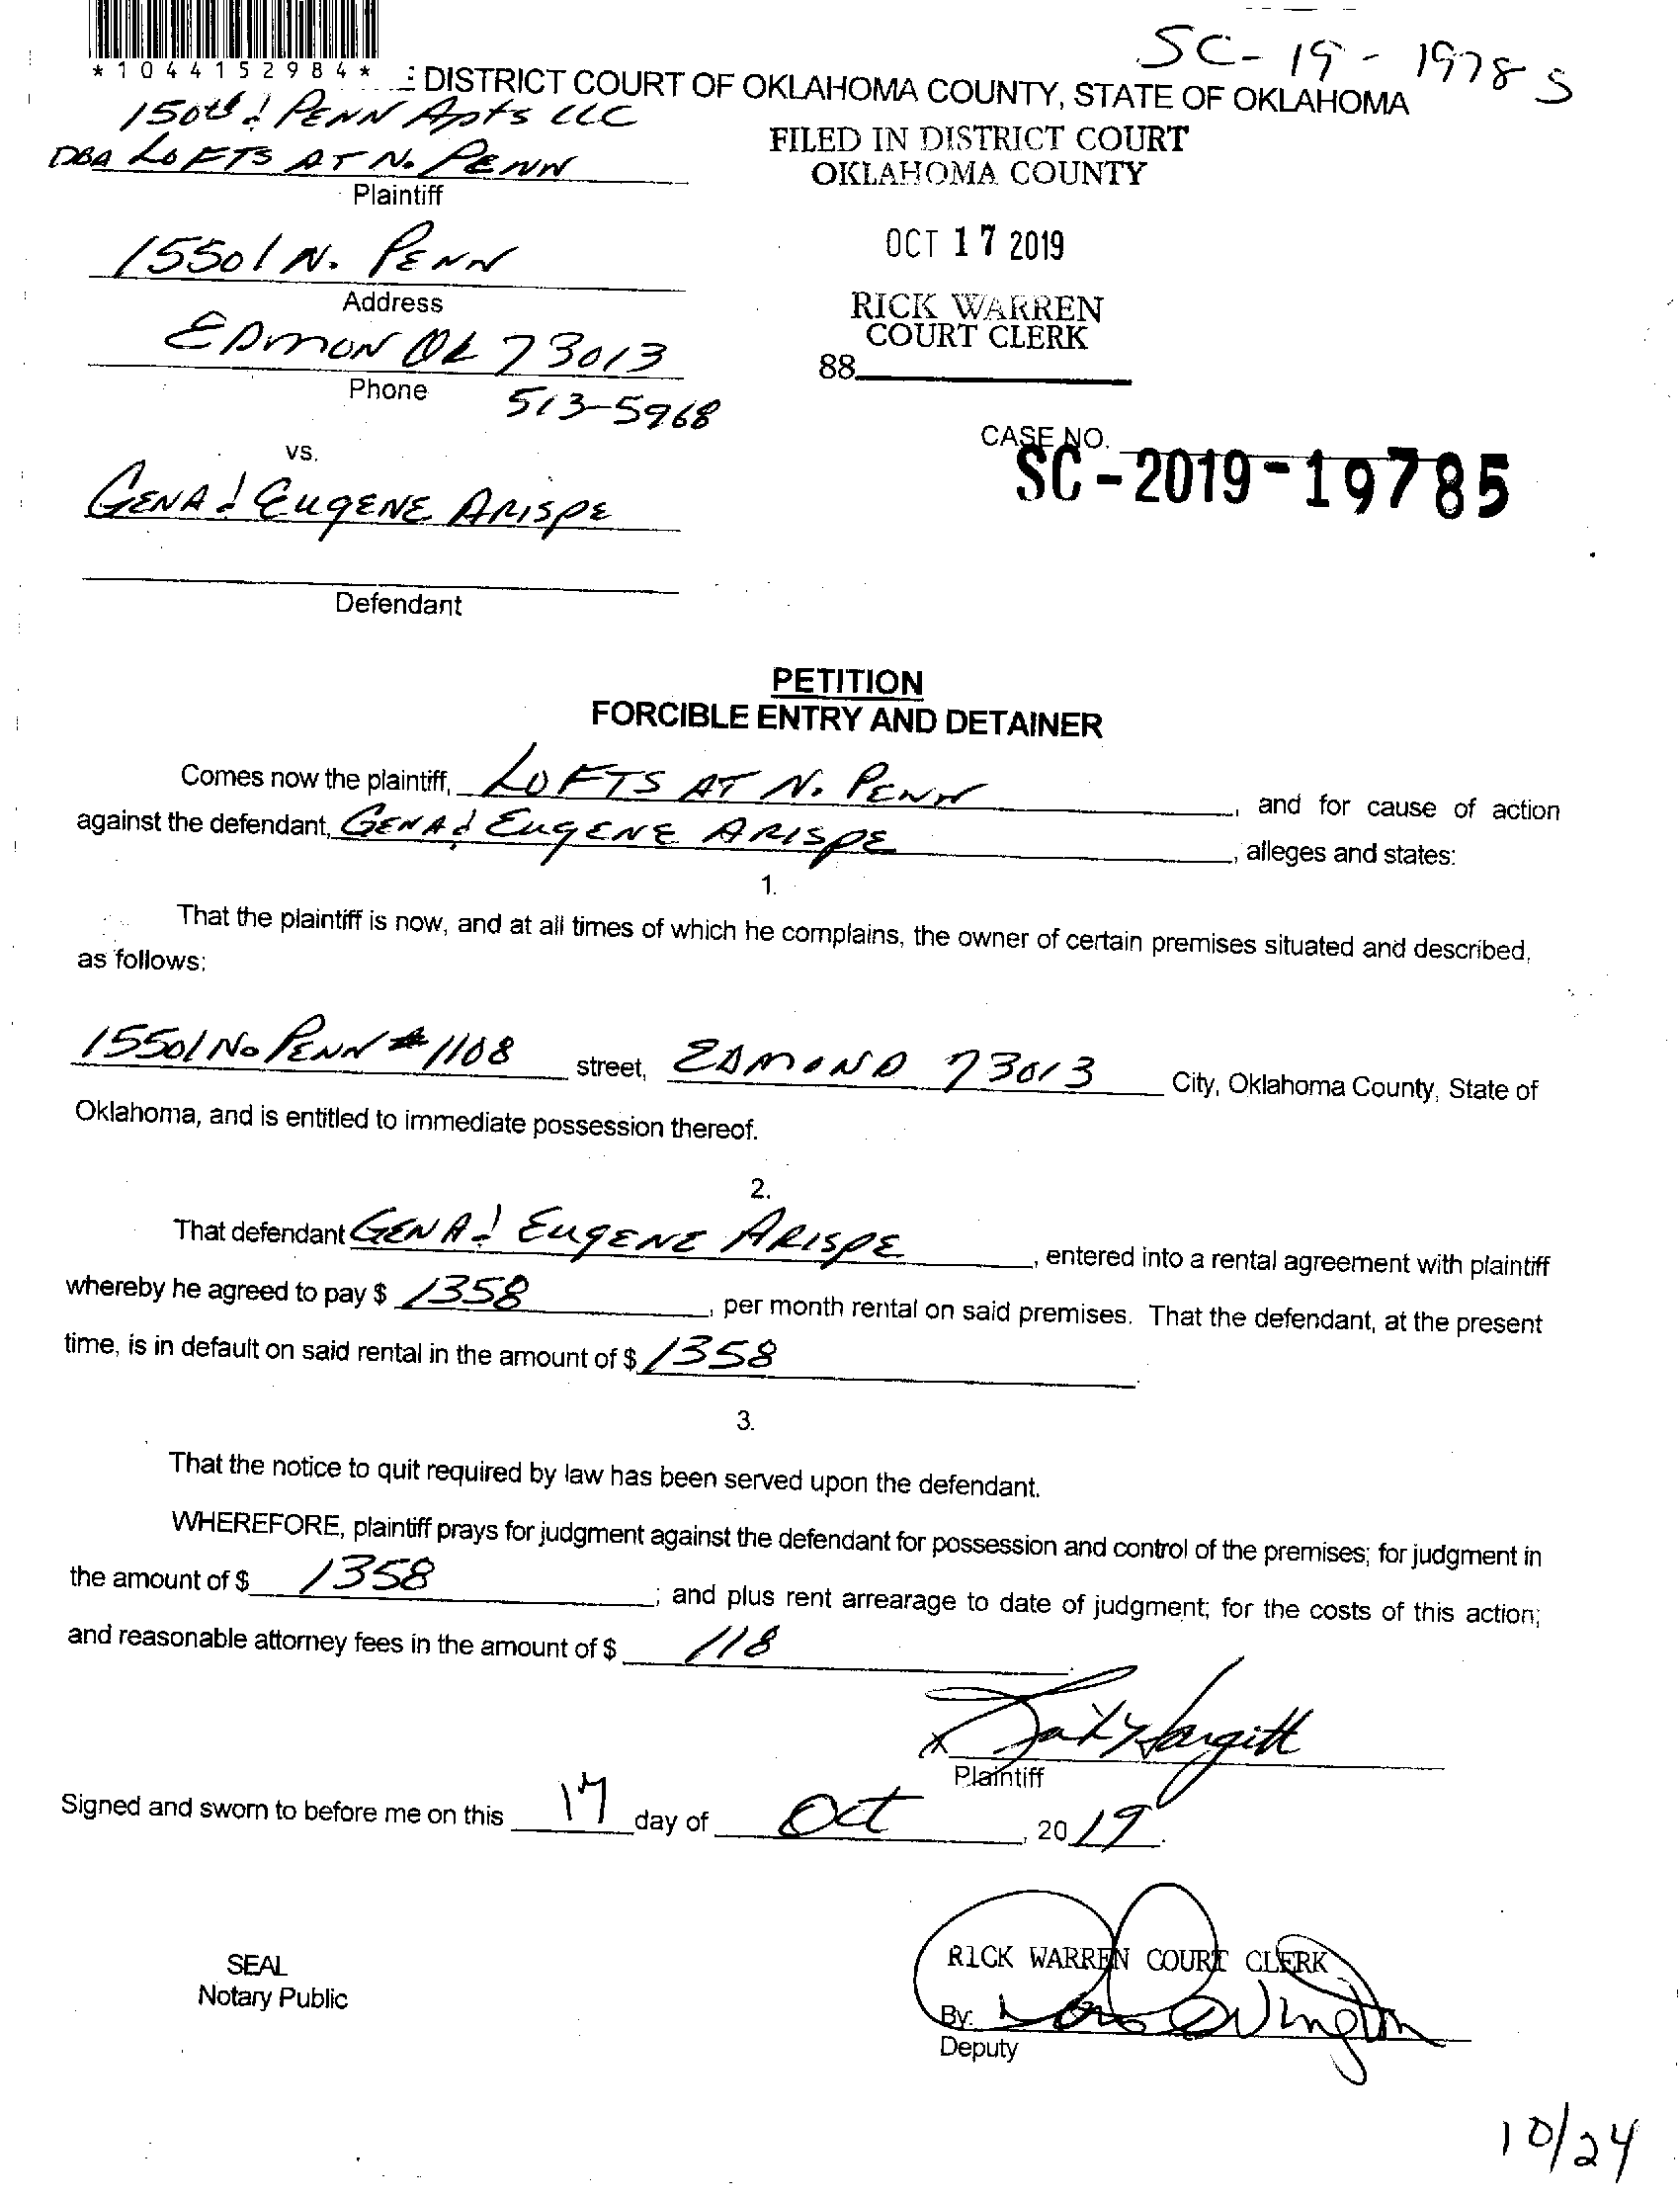 SC-19-19785
*1044152984*
DISTRICT COURT OF OKLAHOMA COUNTY, STATE OF OKLAHOMA
150th & PENN Apts LLC
DBA LOFTS AT N. PENN
Plaintiff
FILED IN DISTRICT COURT
OKLAHOMA COUNTY
OCT 17 2019
RICK WARREN
COURT CLERK
88
15501 N. PENN
Address
EDMON OK 73013
Phone
513-5968
vs.
CASE NO.
SC-2019-19785
GENA & EUGENE ARISPE
Defendant
PETITION
FORCIBLE ENTRY AND DETAINER
Comes now the plaintiff, LOFTS AT N. PENN, and for cause of action
against the defendant, GENA & EUGENE ARISPE, alleges and states:
1.
That the plaintiff is now, and at all times of which he complains, the owner of certain premises situated and described,
as follows:
15501 No PENN #1108 street, EDMOND 73013 City, Oklahoma County, State of
Oklahoma, and is entitled to immediate possession thereof.
2.
That defendant GENA & EUGENE ARISPE, entered into a rental agreement with plaintiff
whereby he agreed to pay $ 1358, per month rental on said premises. That the defendant, at the present
time, is in default on said rental in the amount of $ 1358.
3.
That the notice to quit required by law has been served upon the defendant.
WHEREFORE, plaintiff prays for judgment against the defendant for possession and control of the premises; for judgment in
the amount of $ 1358; and plus rent arrearage to date of judgment; for the costs of this action;
and reasonable attorney fees in the amount of $ 118
x Hargitt
Plaintiff
Signed and sworn to before me on this 17 day of Oct, 2019.
SEAL
Notary Public
RICK WARREN COURT CLERK
By:
Deputy
10/24